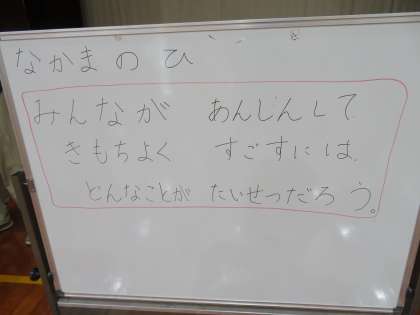 なかまの ひ
みんなが あんしんして
きもちよく すごすには、
どんなことが たいせつだろう。